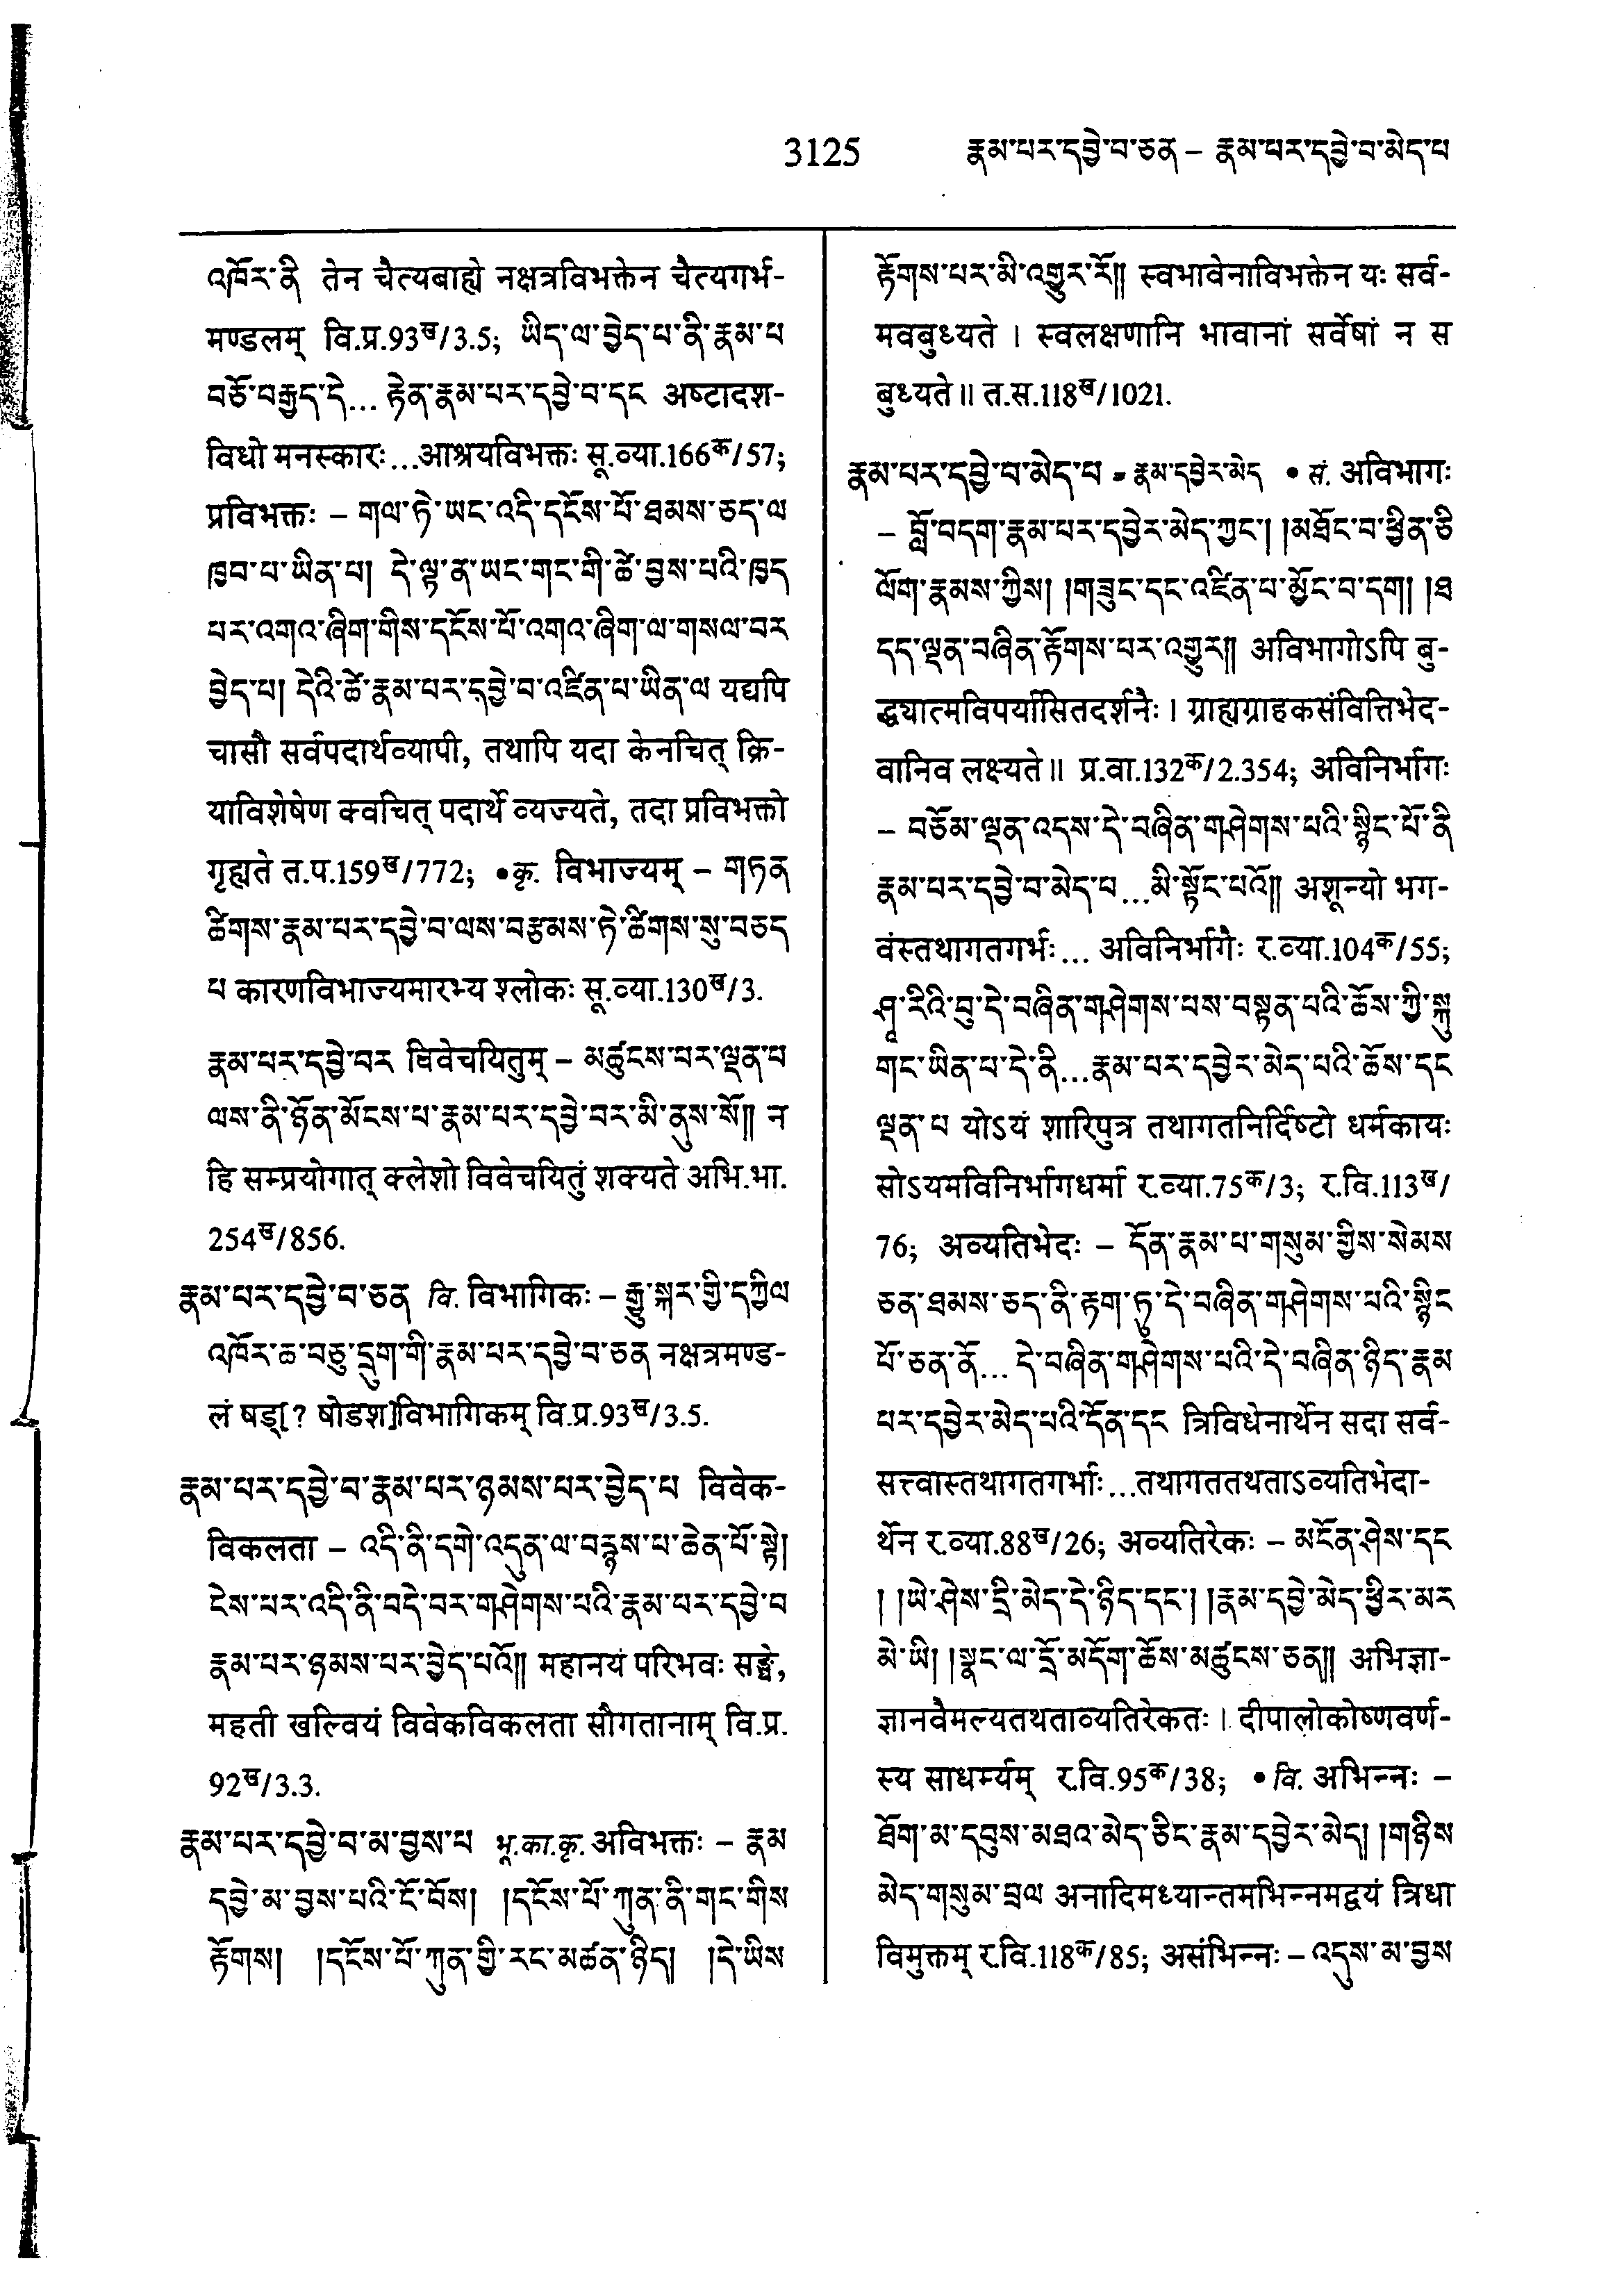 3125 རྣམ་པར་དབྱེ་བ་ཅན – རྣམ་པར་དབྱེ་བ་མེད་པ
འཁོར་ནི तेन चैत्यबाह्ये नक्षत्रविभक्तेन चैत्यगर्भ-
मण्डलम् वि.प्र.93ख/3.5; ཡིད་ལ་བྱེད་པ་ནི་རྣམ་པ
བཅོ་བརྒྱད་དེ... རྟེན་རྣམ་པར་དབྱེ་བ་དང अष्टादश-
विधो मनस्कारः...आश्रयविभक्तः सू.व्या.166क/57;
प्रविभक्तः – གལ་ཏེ་ཡང་འདི་དངོས་པོ་ཐམས་ཅད་ལ
ཁྱབ་པ་ཡིན་པ། དེ་ལྟ་ན་ཡང་གང་གི་ཚེ་བྱས་པའི་ཁྱད
པར་འགའ་ཞིག་གིས་དངོས་པོ་འགའ་ཞིག་ལ་གསལ་བར
བྱེད་པ། དེའི་ཚེ་རྣམ་པར་དབྱེ་བ་འཛིན་པ་ཡིན་ལ यद्यपि
चासौ सर्वपदार्थव्यापी, तथापि यदा केनचित् क्रि-
याविशेषेण क्वचित् पदार्थे व्यज्यते, तदा प्रविभक्तो
गृह्यते त.प.159ख/772; •कृ. विभाज्यम् – གཏན
ཚིགས་རྣམ་པར་དབྱེ་བ་ལས་བརྩམས་ཏེ་ཚིགས་སུ་བཅད
པ कारणविभाज्यमारभ्य श्लोकः सू.व्या.130ख/3.
རྣམ་པར་དབྱེ་བར विवेचयितुम् – མཚུངས་པར་ལྡན་པ
ལས་ནི་ཉོན་མོངས་པ་རྣམ་པར་དབྱེ་བར་མི་ནུས་སོ།། न
हि सम्प्रयोगात् क्लेशो विवेचयितुं शक्यते अभि.भा.
254ख/856.
རྣམ་པར་དབྱེ་བ་ཅན वि. विभागिकः – རྒྱུ་སྐར་གྱི་དཀྱིལ
འཁོར་ཆ་བཅུ་དྲུག་གི་རྣམ་པར་དབྱེ་བ་ཅན नक्षत्रमण्ड-
लं षड्[? षोडश]विभागिकम् वि.प्र.93ख/3.5.
རྣམ་པར་དབྱེ་བ་རྣམ་པར་ཉམས་པར་བྱེད་པ विवेक-
विकलता – འདི་ནི་དགེ་འདུན་ལ་བརྙས་པ་ཆེན་པོ་སྟེ།
ངེས་པར་འདི་ནི་བདེ་བར་གཤེགས་པའི་རྣམ་པར་དབྱེ་བ
རྣམ་པར་ཉམས་པར་བྱེད་པའོ།། महानयं परिभवः सङ्घे,
महती खल्वियं विवेकविकलता सौगतानाम् वि.प्र.
92ख/3.3.
རྣམ་པར་དབྱེ་བ་མ་བྱས་པ भू.का.कृ. अविभक्तः – རྣམ
དབྱེ་མ་བྱས་པའི་ངོ་བོས། །དངོས་པོ་ཀུན་ནི་གང་གིས
རྟོགས། །དངོས་པོ་ཀུན་གྱི་རང་མཚན་ཉིད། །དེ་ཡིས
རྟོགས་པར་མི་འགྱུར་རོ།། स्वभावेनाविभक्तेन यः सर्व-
मवबुध्यते । स्वलक्षणानि भावानां सर्वेषां न स
बुध्यते ॥ त.स.118ख/1021.
རྣམ་པར་དབྱེ་བ་མེད་པ = རྣམ་དབྱེར་མེད • सं. अविभागः
– བློ་བདག་རྣམ་པར་དབྱེར་མེད་ཀྱང་། །མཐོང་བ་ཕྱིན་ཅི
ལོག་རྣམས་ཀྱིས། །གཟུང་དང་འཛིན་པ་མྱོང་བ་དག །ཐ
དད་ལྡན་བཞིན་རྟོགས་པར་འགྱུར།། अविभागोऽपि बु-
द्ध्यात्मविपर्यासितदर्शनैः । ग्राह्यग्राहकसंवित्तिभेद-
वानिव लक्ष्यते ॥ प्र.वा.132क/2.354; अविनिर्भागः
– བཅོམ་ལྡན་འདས་དེ་བཞིན་གཤེགས་པའི་སྙིང་པོ་ནི
རྣམ་པར་དབྱེ་བ་མེད་པ...མི་སྟོང་པའོ།། अशून्यो भग-
वंस्तथागतगर्भः... अविनिर्भागैः र.व्या.104क/55;
ཤཱ་རིའི་བུ་དེ་བཞིན་གཤེགས་པས་བསྟན་པའི་ཆོས་ཀྱི་སྐུ
གང་ཡིན་པ་དེ་ནི...རྣམ་པར་དབྱེར་མེད་པའི་ཆོས་དང
ལྡན་པ योऽयं शारिपुत्र तथागतनिर्दिष्टो धर्मकायः
सोऽयमविनिर्भागधर्मा र.व्या.75क/3; र.वि.113ख/
76; अव्यतिभेदः – དོན་རྣམ་པ་གསུམ་གྱིས་སེམས
ཅན་ཐམས་ཅད་ནི་རྟག་ཏུ་དེ་བཞིན་གཤེགས་པའི་སྙིང
པོ་ཅན་ནོ... དེ་བཞིན་གཤེགས་པའི་དེ་བཞིན་ཉིད་རྣམ
པར་དབྱེར་མེད་པའི་དོན་དང त्रिविधेनार्थेन सदा सर्व-
सत्त्वास्तथागतगर्भाः...तथागततथताऽव्यतिभेदा-
र्थेन र.व्या.88ख/26; अव्यतिरेकः – མངོན་ཤེས་དང
། །ཡེ་ཤེས་དྲི་མེད་དེ་ཉིད་དང་། །རྣམ་དབྱེ་མེད་ཕྱིར་མར
མེ་ཡི། །སྣང་ལ་དྲོ་མདོག་ཆོས་མཚུངས་ཅན།། अभिज्ञा-
ज्ञानवैमल्यतथताव्यतिरेकतः । दीपालोकोष्णवर्ण-
स्य साधर्म्यम् र.वि.95क/38; • वि. अभिन्नः –
ཐོག་མ་དབུས་མཐའ་མེད་ཅིང་རྣམ་དབྱེར་མེད། །གཉིས
མེད་གསུམ་བྲལ अनादिमध्यान्तमभिन्नमद्वयं त्रिधा
विमुक्तम् र.वि.118क/85; असंभिन्नः – འདུས་མ་བྱས